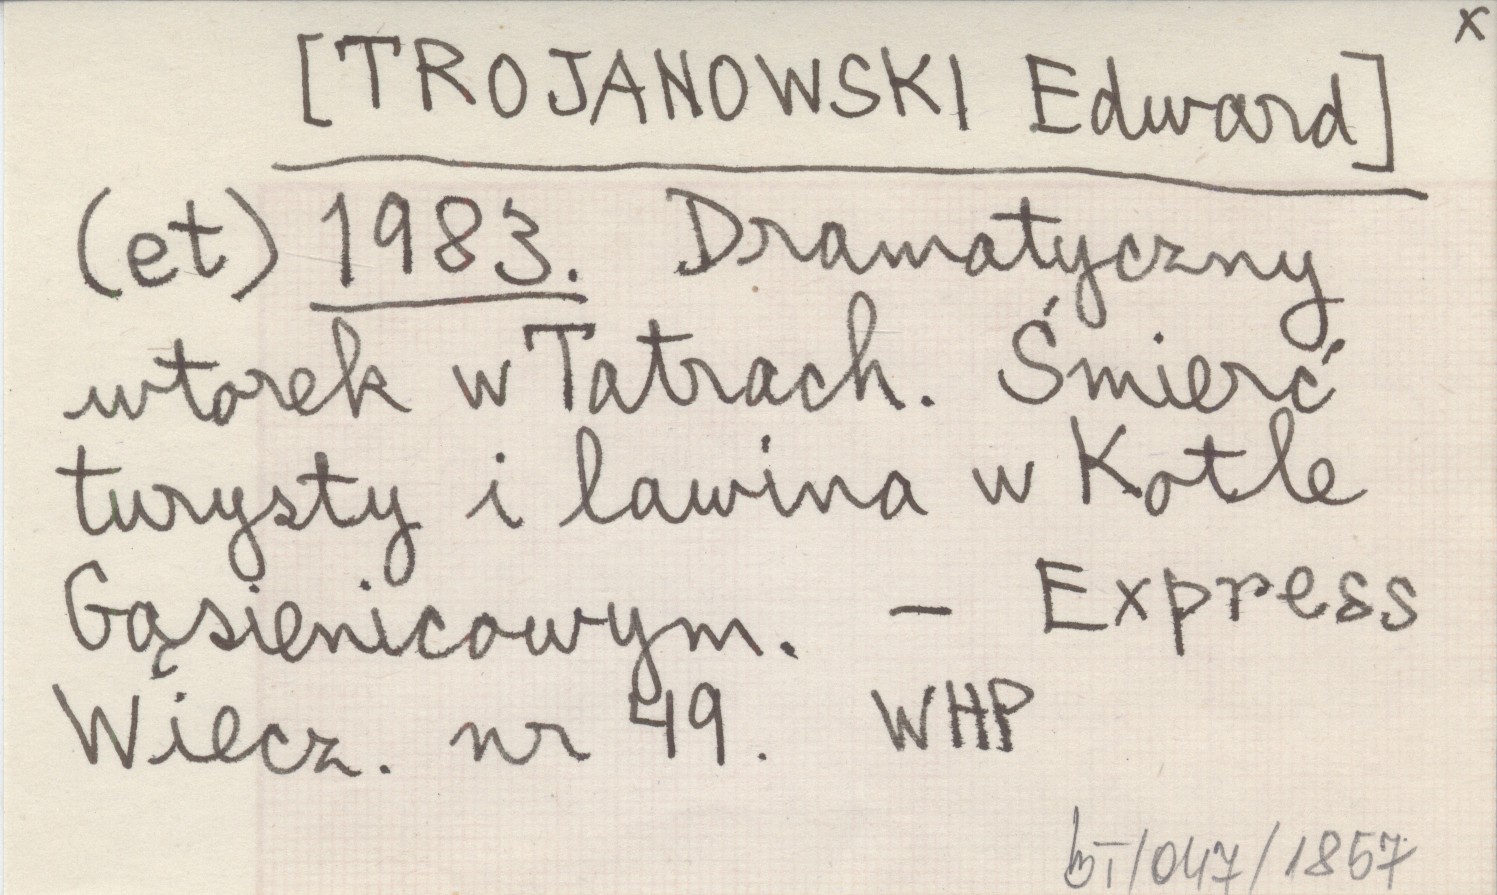 x
[TROJANOWSKI Edward]
(et) 1983. Dramatyczny
wtorek w Tatrach. Śmierć
turysty i lawina w Kotle
Gąsienicowym. – Express
Wiecz. nr 49. WHP
bT/047/1857